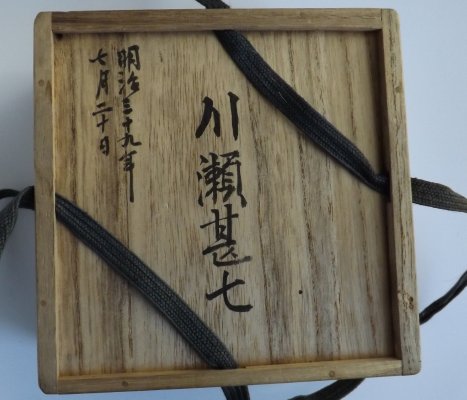 川瀬甚七
明治三十九年
七月二十日